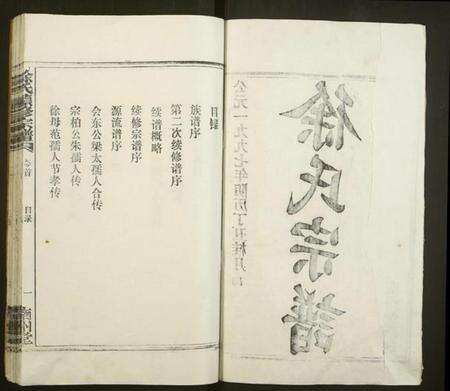 徐氏宗譜
公元一九九七年阴历丁丑桂月
目录
族谱序
第二次续修谱序
续谱概略
续修宗谱序
源流谱序
会东公梁太孺人合传
宗柏公朱孺人传
徐母范孺人节孝传
徐氏續修宗譜
卷首
目录
一